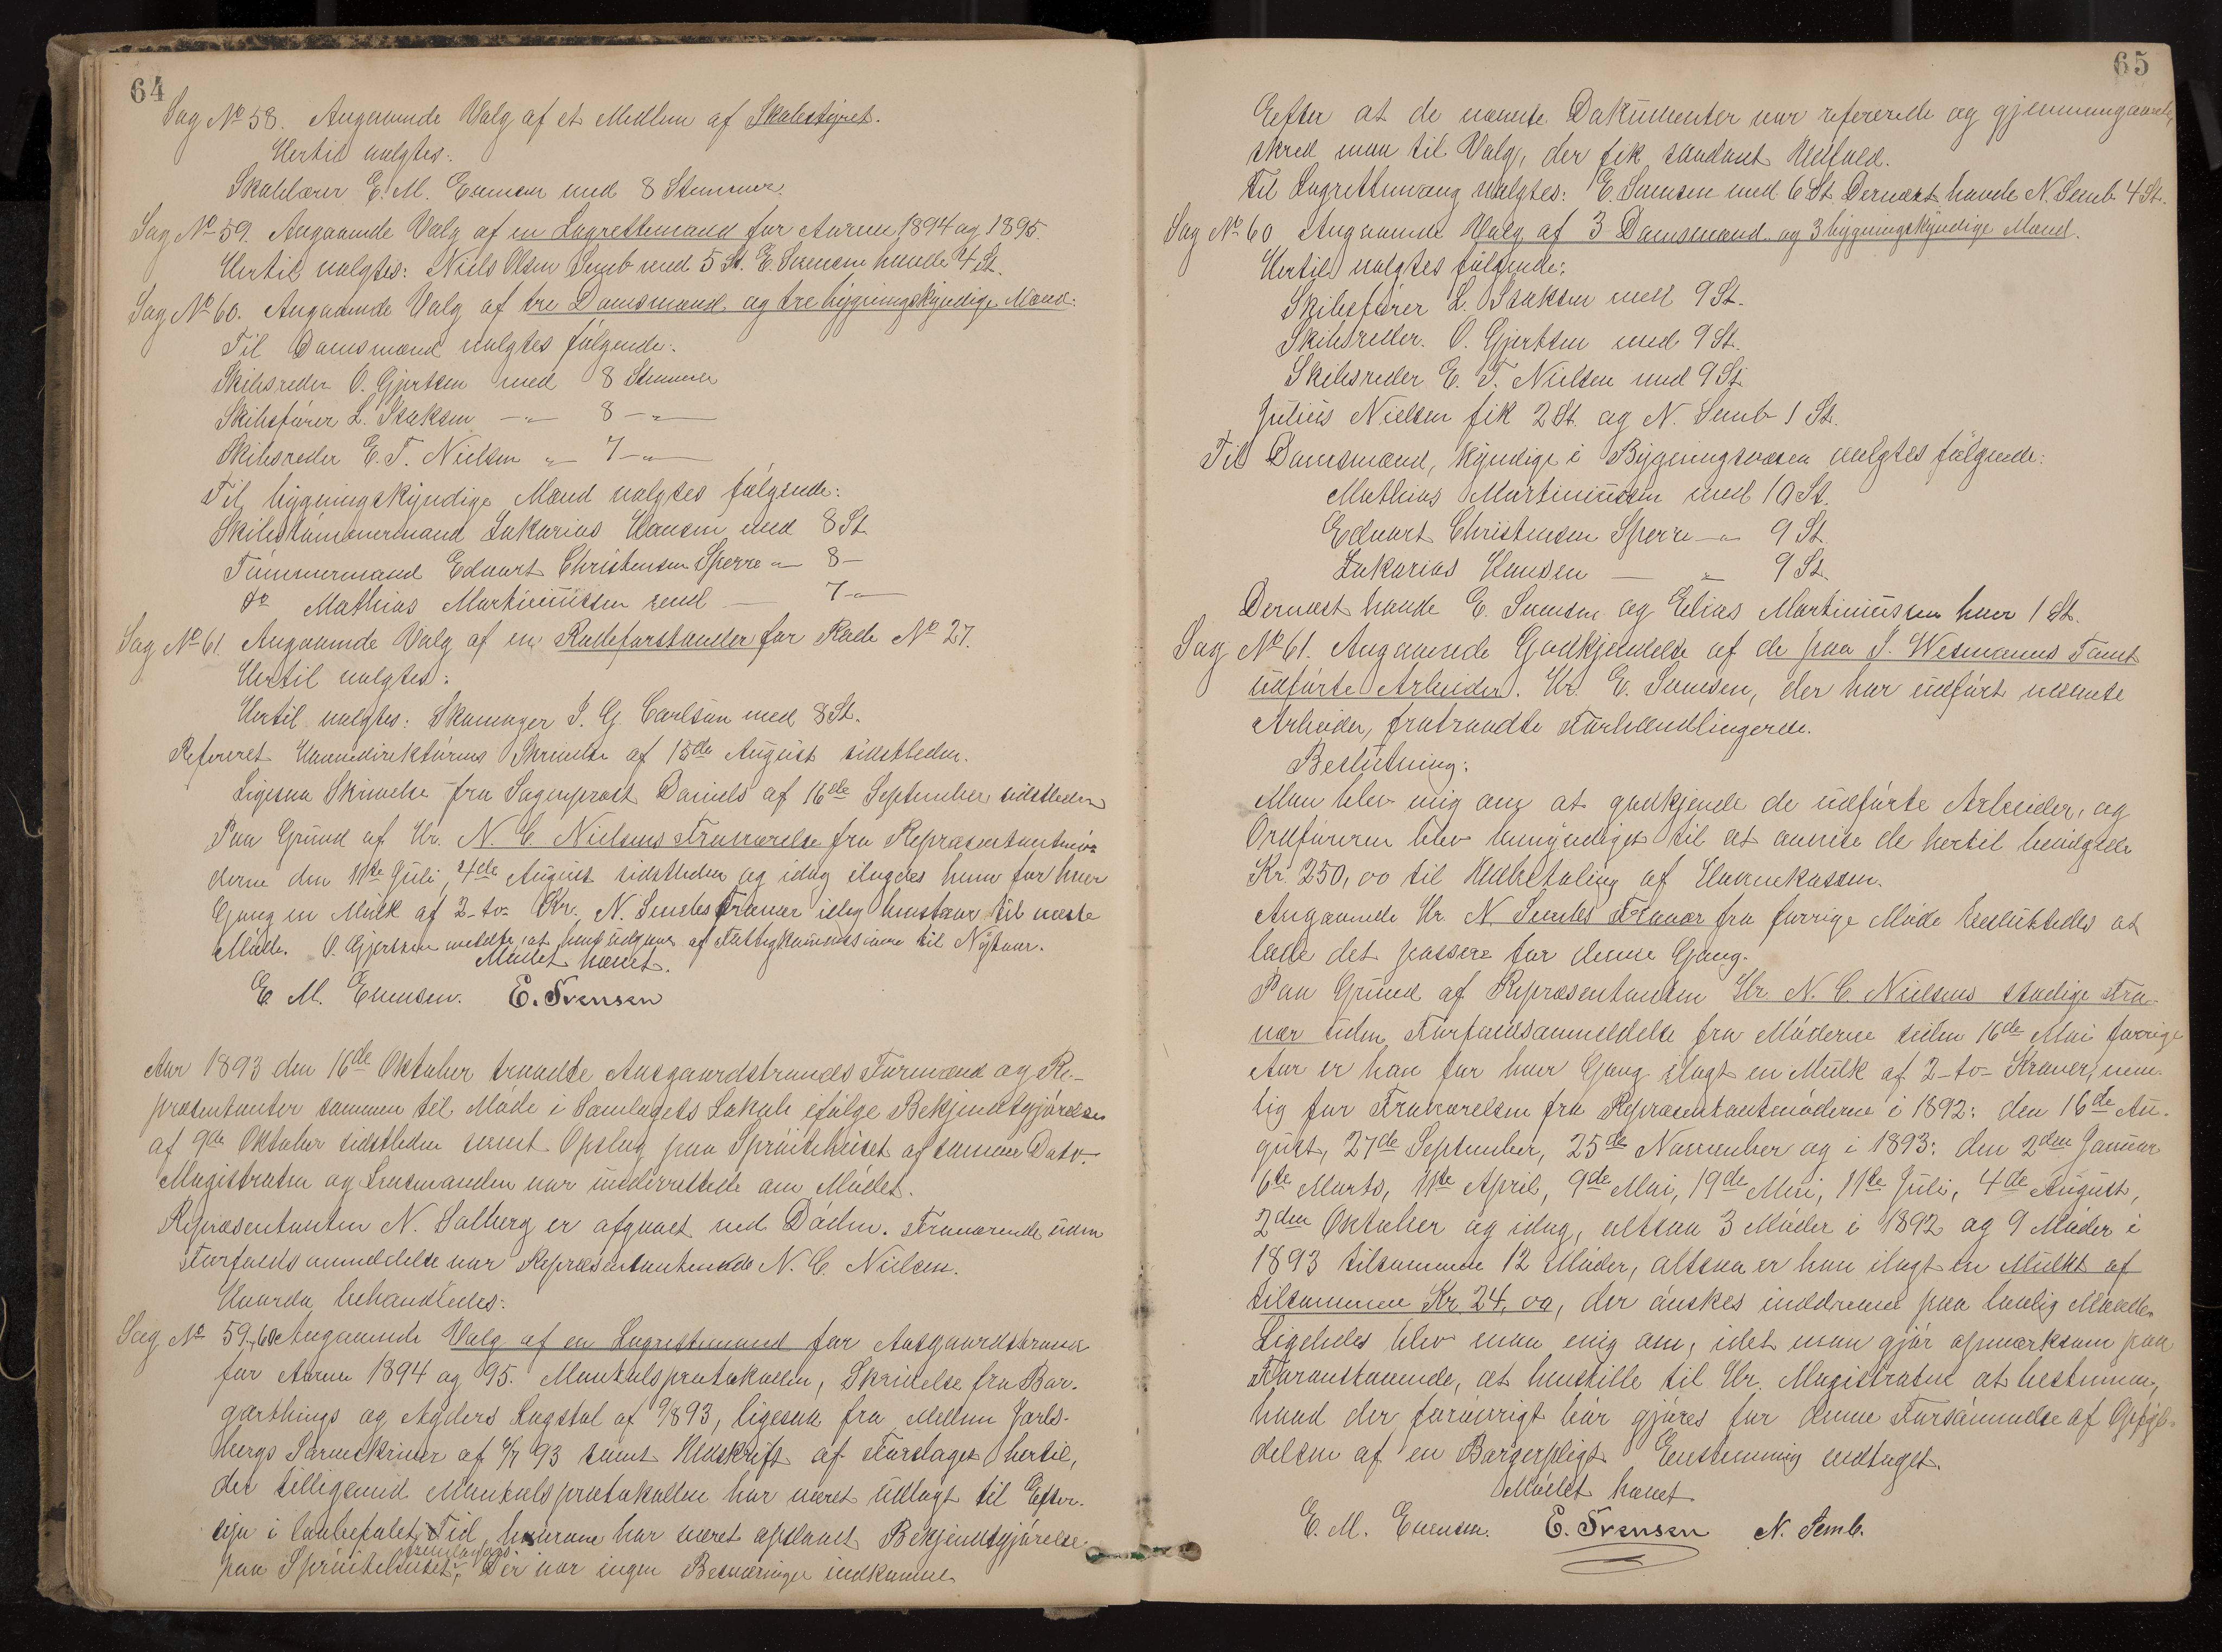 64
Sag No 58. Angaaende Valg af et Medlem af Skolestyret.
Hertil valgtes:
Skolelærer E. M. Evensen med 8 Stemmer.
Sag No 59. Angaaende Valg af en Lagrettemand for Aarene 1894 og 1895.
Hertil valgtes: Niels Olsen Semb med 5 St. E. Svensen havde 4 St.
Sag No 60. Angaaende Valg af tre Domsmænd og tre bygningskyndige Mænd:
Til Domsmænd valgtes følgende:
Skibsreder O. Gjertsen med 8 Stemmer
Skibsfører L. Isaksen -"- 8 -"-
Skibsreder E. T. Nielsen " 7 -"-
Til bygningskyndige Mænd valgtes følgende:
Skibstømmermand Zakarias Hansen med 8 St.
Tømmermand Edvart Christensen Sperre " 8 -
do Mathias Martiniussen med - 7 -"-
Sag No 61. Angaaende Valg af en Rodeforstander for Rode No 27.
Hertil valgtes:
Hertil valgtes: Skomager I. G. Carlson med 8 St.
Refereret Havnedirektørens Skrivelse af 15de August sidstleden.
Ligesaa Skrivelse fra Sogneprost Daniels af 16de September sidstleden
Paa Grund af Hr. N. C. Nielsens Fraværelse fra Repræsentantmø-
derne den 11te Juli, 4de August sidstleden og idag ilagdes ham for hver
Gang en Mulkt af 2-to- Kr. N. Sembs Fravær idag henstaar til næste
Møde. O. Gjertsen meddelte, at hans udgaar af Fattigkommissionen til Nytaar.
Mødet hævet.
E. M. Evensen. E. Svensen
Aar 1893 den 16de Oktober traadte Aasgaardstrands Formænd og Re-
præsentanter sammen til Møde i Samlagets Lokale ifølge Bekjendtgjørelse
af 9de Oktober sidstleden samt Opslag paa Sprøitehuset af samme Dato.
Magistraten og Lensmanden var underrettede om Mødet.
Repræsentanten N. Solberg er afgaaet ved Døden. Fraværende uden
Forfaldsanmeldelse var Repræsentanten N. C. Nielsen.
Hvorda behandledes:
Sag No 59 & 60 Angaaende Valg af en Lagrettemand for Aasgaardstrand
for Aarene 1894 og 95. Mantalsprotokollen, Skrivelse fra Bor-
garthings og Agders Lagstol af 9/8 93, ligesaa fra Mellem Jarls-
bergs Sorenskriver af 6/9 93 samt Udskrift af Forslaget hertil,
der tilligemed Mantalsprotokollen har været udlagt til Efter-
syn i lovbefalet Tid, hvorom har været opslaaet Bekjendtgjørelse
paa Sprøitehuset, fremlagdes. Der var ingen Besværinger indkomne
65
Efter at de nævnte Dokumenter var refererede og gjennemgaaede,
skred man til Valg, der fik saadant Udfald.
Til Lagrettemand valgtes: E. Svensen med 6 St. Dernæst havde N. Semb 4 St.
Sag No 60 Angaaende Valg af 3 Domsmænd og 3 bygningskyndige Mænd.
Hertil valgtes følgende:
Skibsfører L. Isaksen med 9 St.
Skibsreder O. Gjertsen med 9 St.
Skibsreder E. T. Nielsen med 9 St.
Julius Nielsen fik 2 St. og N. Semb 1 St.
Til Domsmænd, kyndige i Bygningsvæsen valgtes følgende:
Mathias Martiniussen med 10 St.
Edvart Christensen Sperre -"- 9 St.
Zakarias Hansen - " 9 St.
Dernæst havde E. Svensen og Elias Martiniussen hver 1 St.
Sag No 61. Angaaende Godkjendelse af de paa I. Wesmanns Tomt
udførte Arbeider. Hr. E. Svensen, der har udført nævnte
Arbeider, fratraadte Forhandlingerne.
Beslutning:
Man blev enig om at godkjende de udførte Arbeider, og
Ordføreren blev bemyndiget til at anvise de hertil bevilgede
Kr. 250,00 til Udbetaling af Havnekassen.
Angaaende Hr. N. Sembs Fravær fra forrige Møde besluttedes at
lade det passere for denne Gang.
Paa Grund af Repræsentanten Hr. N. C. Nielsens stadige Fra-
vær uden Forfaldsanmeldelse fra Møderne siden 16de Mai forrige
Aar er han for hver Gang ilagt en Mulkt af 2-to- Kroner, nem-
lig for Fraværelsen fra Repræsentantmøderne i 1892: den 16de Au-
gust, 27de September, 25de November og i 1893: den 2den Januar
6te Marts, 11te April, 9de Mai, 19de Mai, 11te Juli, 4de August,
2den Oktober og idag, altsaa 3 Møder i 1892 og 9 Møder i
1893 tilsammen 12 Møder, altsaa er han ilagt en Mulkt af
tilsammen Kr. 24,00, der ønskes inddreven paa lovlig Maade.
Ligeledes blev man enig om, idet man gjør opmærksom paa
Foranstaaende, at henstille til Hr. Magistraten at bestemme,
hvad der forøvrigt bør gjøres for denne Forsømmelse af Opfyl-
delsen af en Borgerpligt. Enstemmig vedtaget.
Mødet hævet
E. M. Evensen. E. Svensen N. Semb.